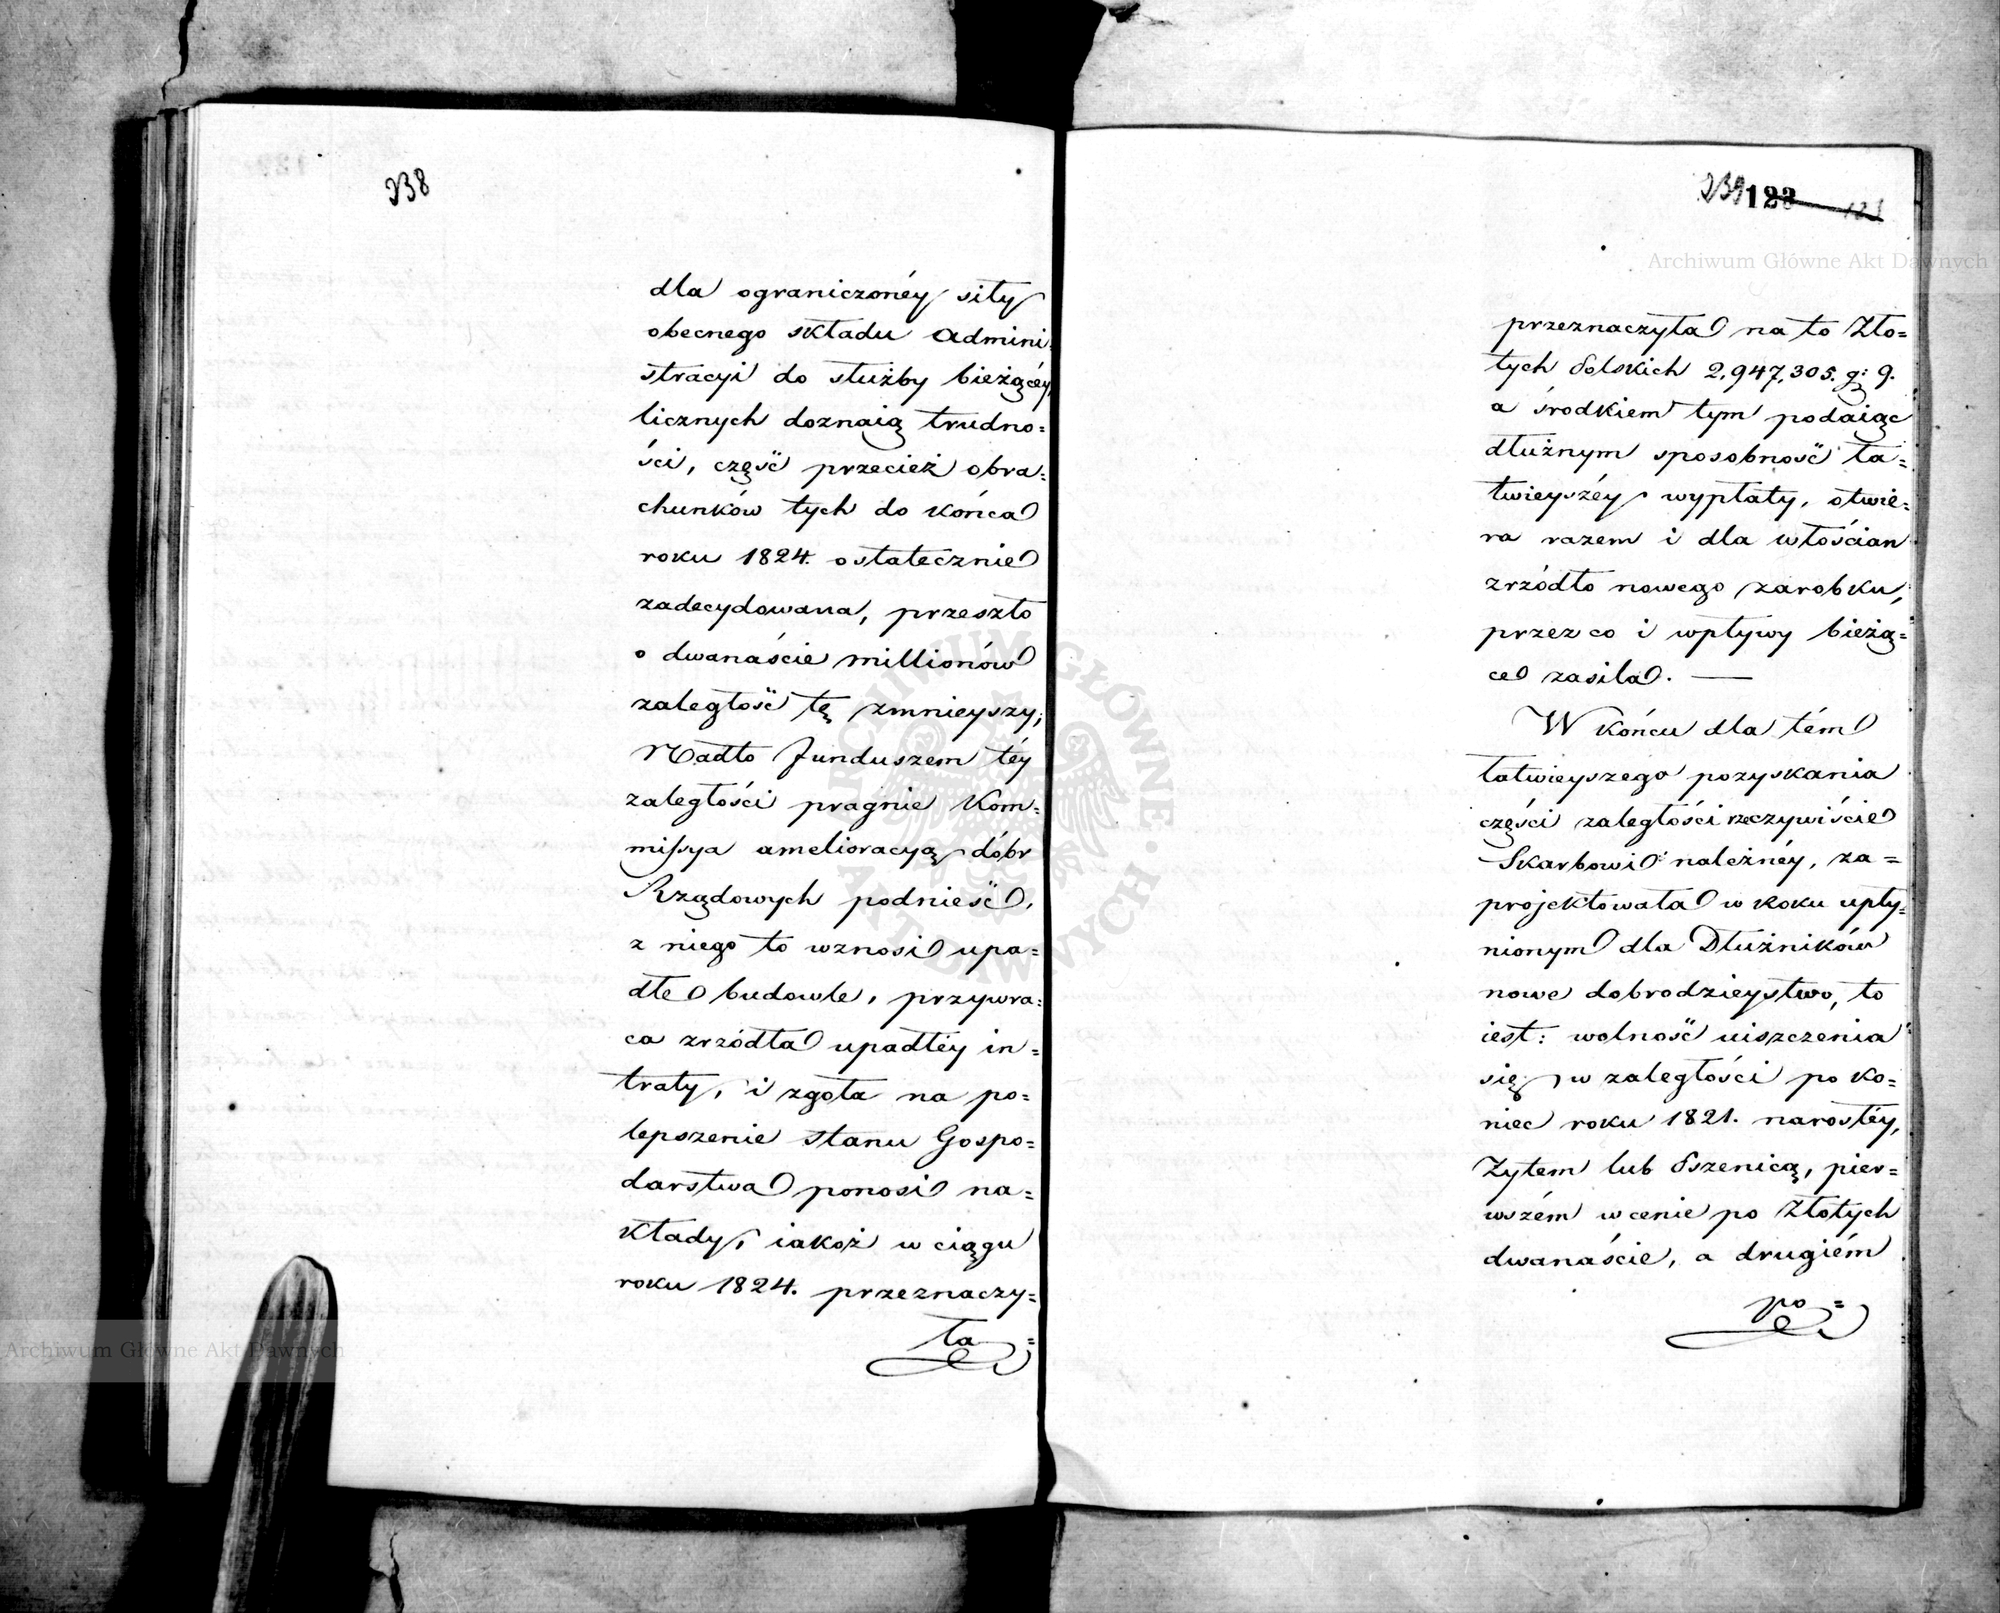 238
dla ograniczonéy siły
obecnego składu Admini=
stracyi do służby bieżącéy
licznych doznaią trudno=
ści, część przecież obra=
chunków tych do końca
roku 1824. ostatecznie
zadecydowana, przeszło
o dwanaście millionów
zaległość tę zmnieyszy;
Nadto Funduszem téy
zaległości pragnie Kom=
missya amelioracyą dóbr
Rządowych podnieść,
z niego to wznosi upa=
dłe budowle, przywra=
ca zrzódła upadłéy in=
traty, i zgoła na po=
lepszenie stanu Gospo=
darstwa ponosi na=
kłady, iakoż w ciągu
roku 1824. przeznaczy=
ła=
239 123
przeznaczyła na to Zło=
tych Polskich 2,947,305. g: 9.
a środkiem tym podaiąc
dłużnym sposobność ła=
twieyszéy wypłaty, otwie=
ra razem i dla włościan
zrzódło nowego zarobku,
przez co i wpływy bieżą=
ce zasila. —
W końcu dla tém
łatwieyszego pozyskania
części zaległości rzeczywiście
Skarbowi należnéy, za=
projektowała w roku upły=
nionym dla Dłużników
nowe dobrodzieystwo, to
iest: wolność uiszczenia
się w zaległości po ko=
niec roku 1821. narosłéy,
Żytem lub Pszenicą, pier=
wszém w cenie po Złotych
dwanaście, a drugiém
po=
Archiwum Główne Akt Dawnych
Archiwum Główne Akt Dawnych
ARCHIWUM GŁÓWNE AKT DAWNYCH